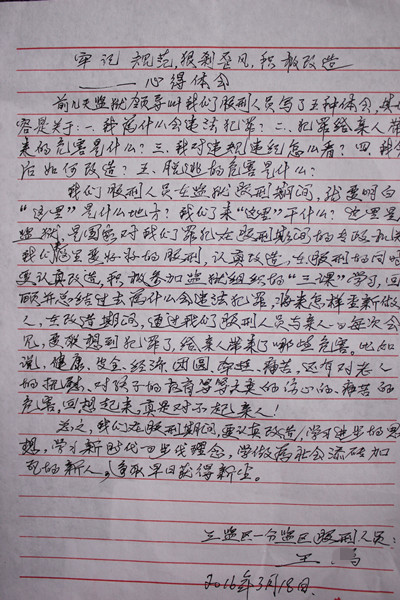 牢记规范,狠刹歪风,积极改造
——心得体会
前几天监狱领导叫我们服刑人员写了五种体会,其内
容是关于:一、我为什么会违法犯罪?二、犯罪给亲人带
来的危害是什么?三、我对违规违纪怎么看?四、我今
后如何改造?五、脱逃的危害是什么?
我们服刑人员在监狱服刑期间,就要明白
“这里”是什么地方?我们来“这里”干什么?这里是
监狱,是国家对我们罪犯在服刑期间的专政机关
我们就是要好好的服刑,认真改造,在服刑的同时
要认真改造,积极参加监狱组织的“三课”学习,回
顾并总结过去为什么会违法犯罪,将来怎样重新做
人,在改造期间,通过我们服刑人员与亲人的每次会
见,要敢想到犯罪了,给亲人带来了哪些危害。比如
说,健康、安全、经济、团圆、痛苦,还有对老人
的抚养,对孩子的教育等等带来的伤心的、痛苦的
危害,回想起来,真是对不起亲人!
总之,我们在服刑期间,要认真改造,学习进步的思
想,学习新时代的理念,学做为社会添砖加
瓦的新人,争取早日获得新生。
三监区一分监区服刑人员:
王 马
2016年3月18日